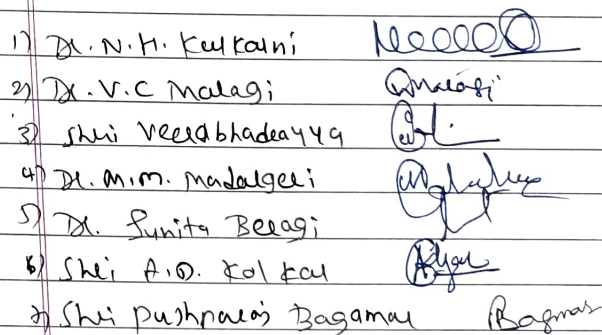 1) Dr. N. H. Kulkarni
2) Dr. V. C Malagi
3) Shri Veerabhadrayya
4) Dr. M. M. Madalgeri
5) Dr. Sunita Beragi
6) Shri A. D. Kolkar
7) Shri Pushparaj Bagamar